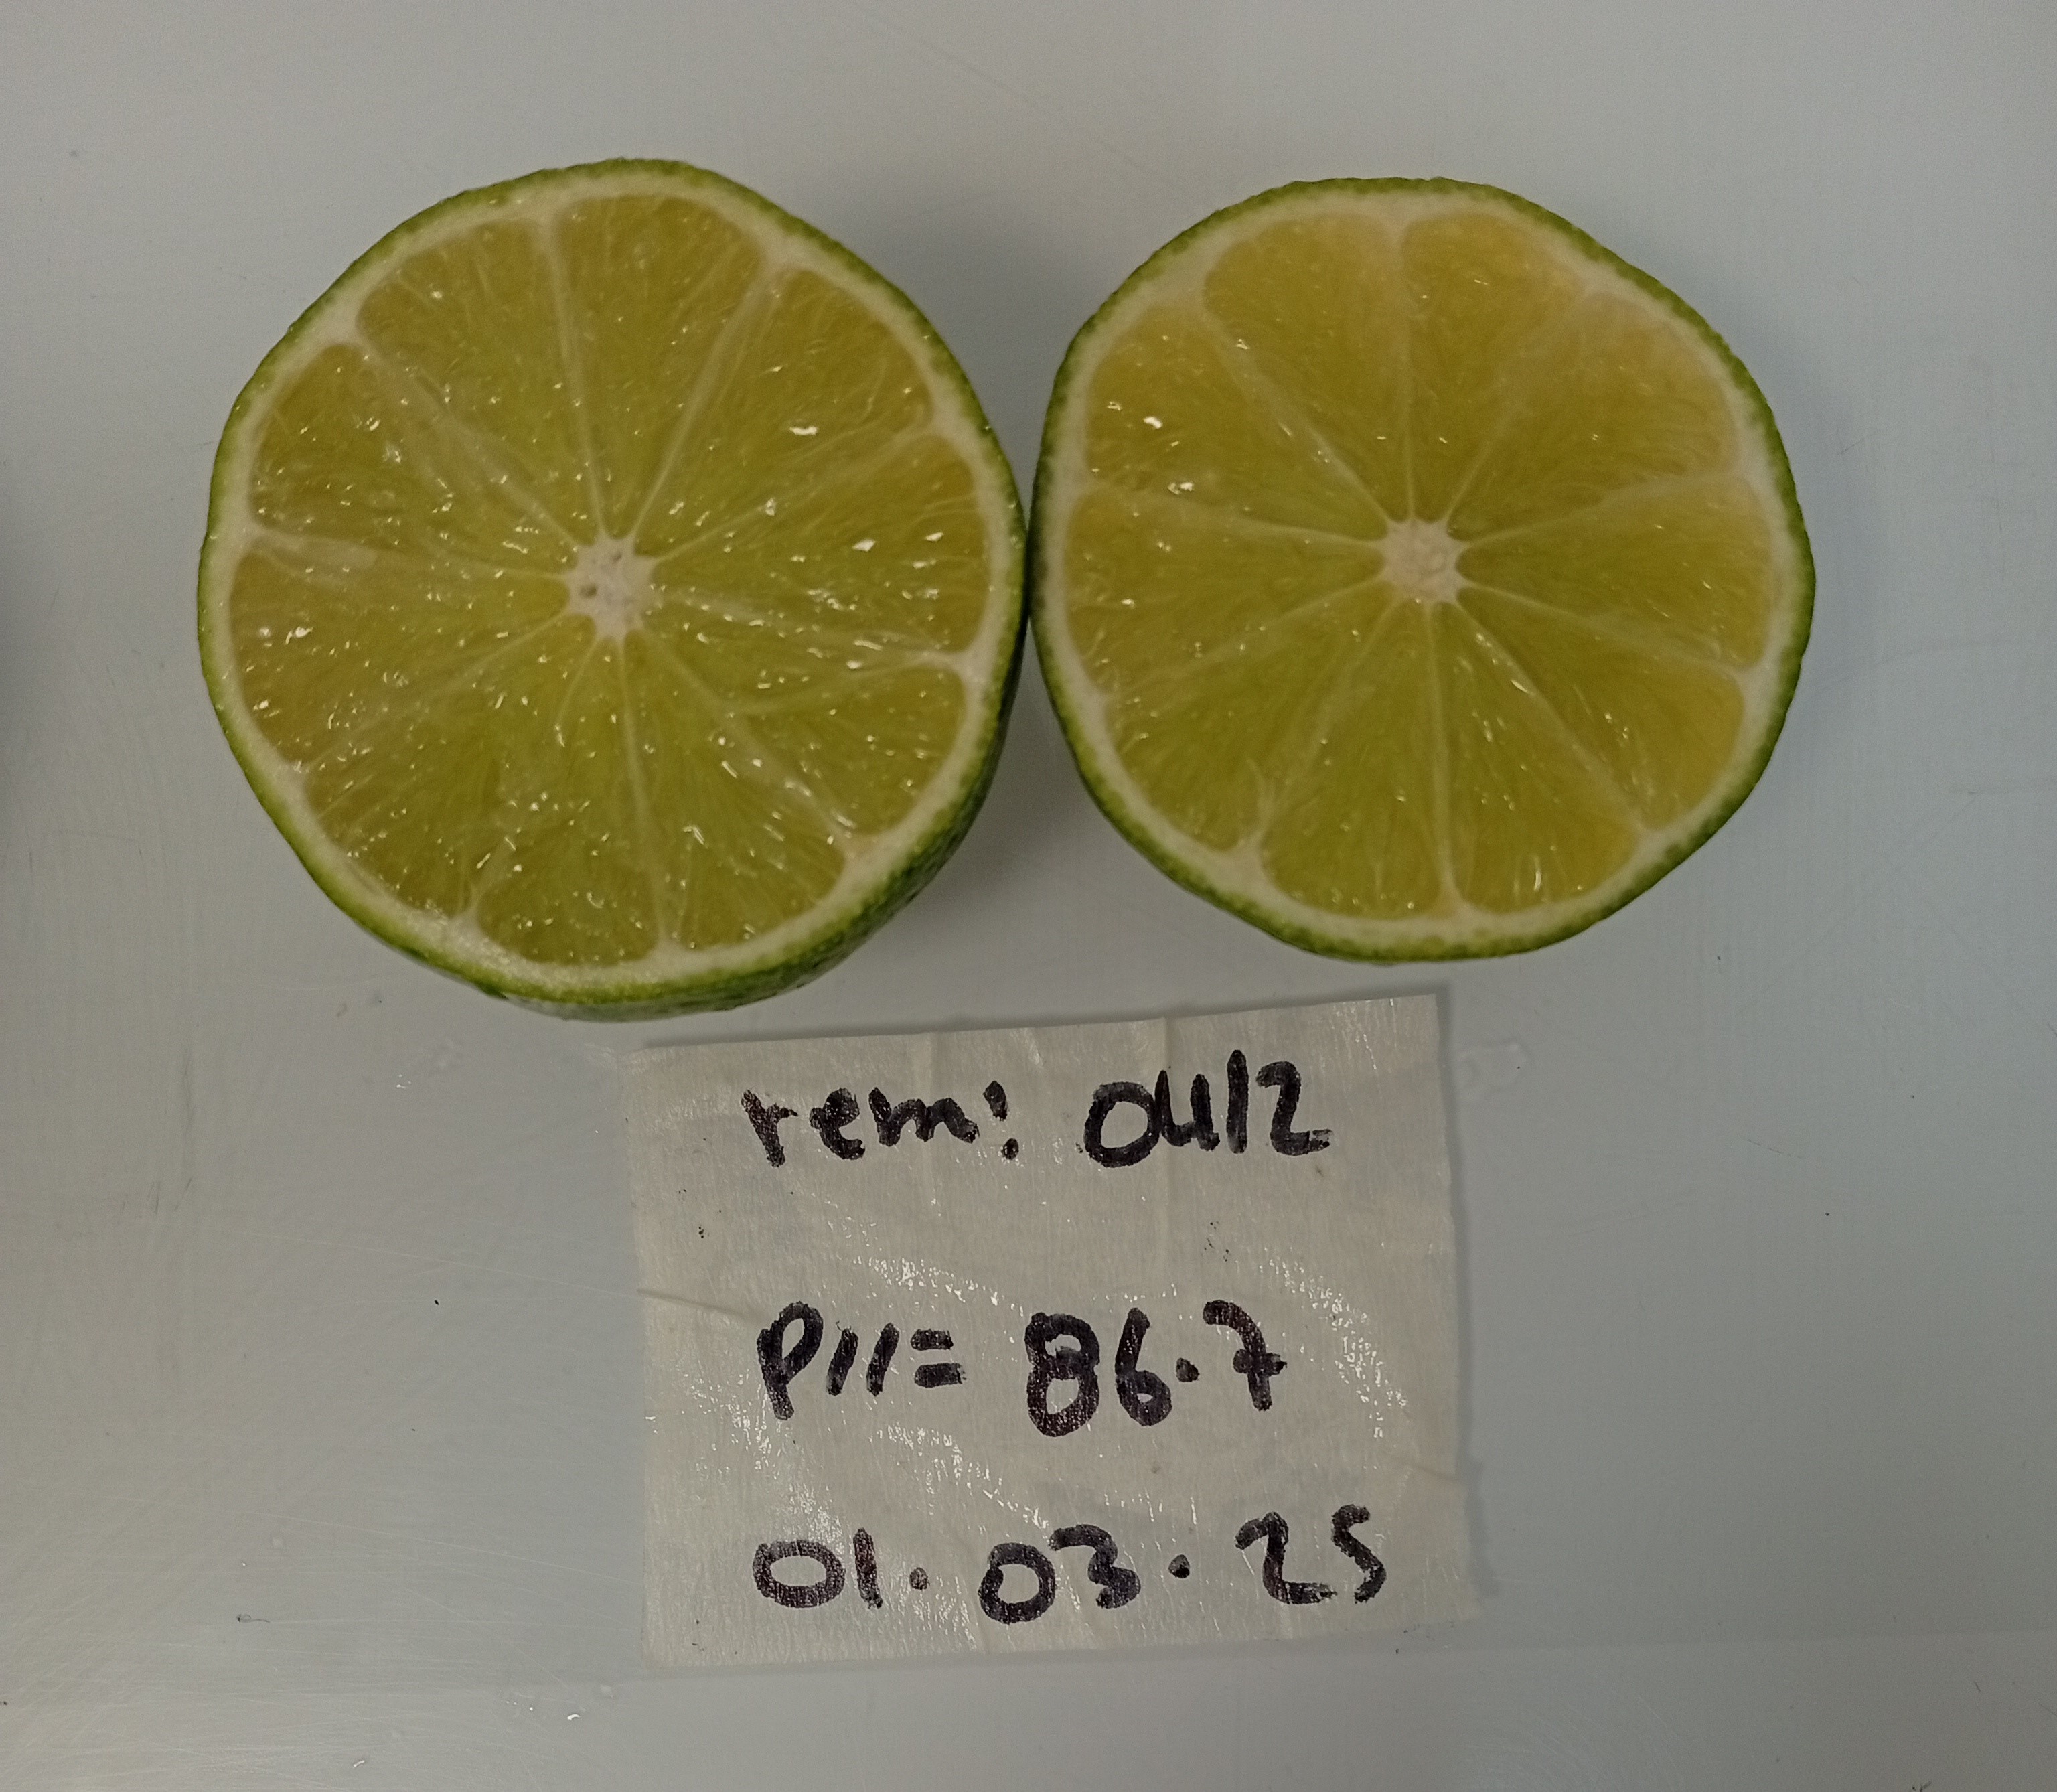 rem: 0412
P11= 86.7
01.03.25